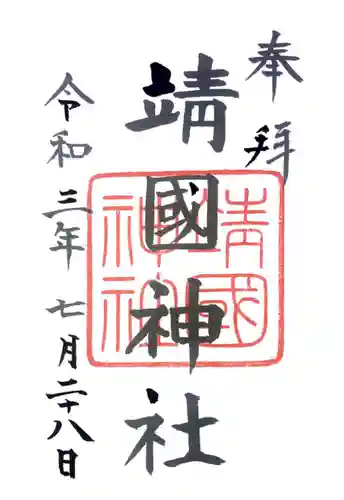 奉拜
靖國神社
靖國神社
令和三年七月二十八日